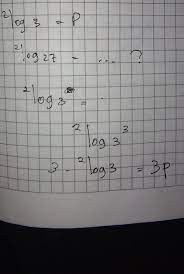 ²log 3 = P
²log 27 = .... ?
²log 3 =
²log 3³
3 - ²log 3 = 3P